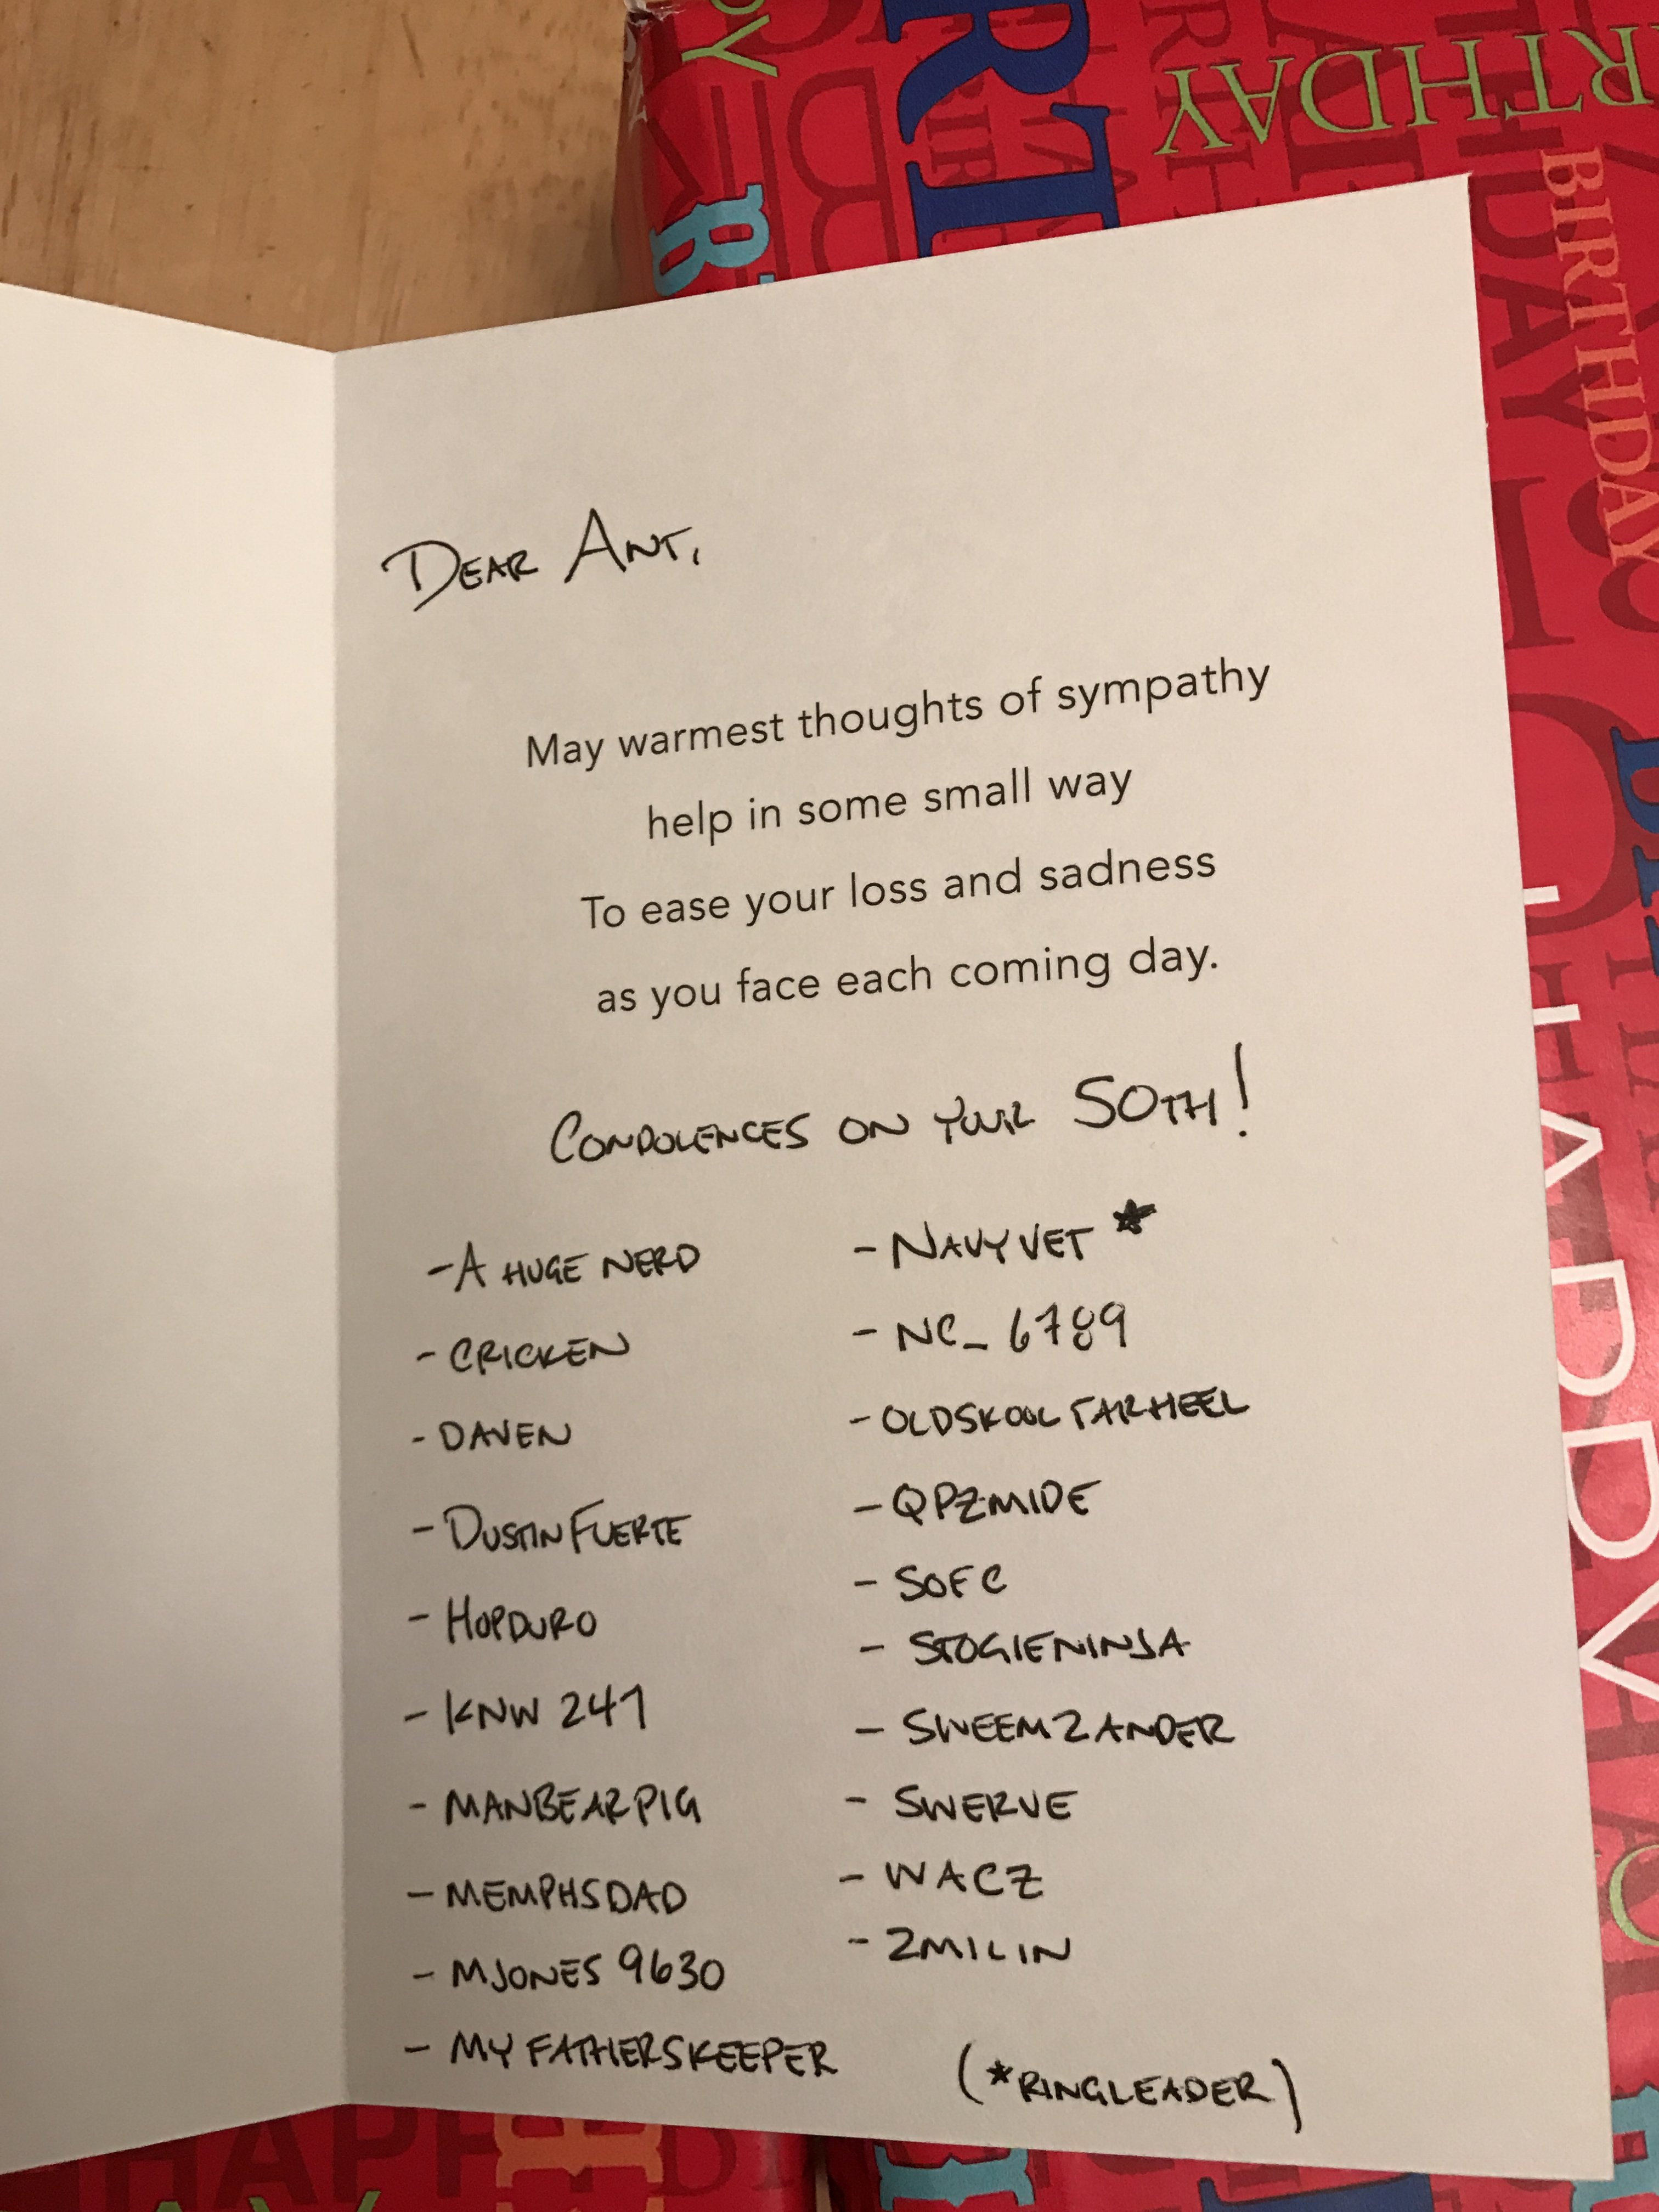 Dear Ant,
May warmest thoughts of sympathy
help in some small way
To ease your loss and sadness
as you face each coming day.
CONDOLENCES ON YOUR 50TH!
- A HUGE NERD
- CRICKEN
- DAVEN
- DUSTINFUERTE
- HOPDURO
- KNW 247
- MANBEARPIG
- MEMPHSDAD
- MJONES 9630
- MY FATHERSKEEPER
- NAVYVET *
- NC_6789
- OLDSKOOLTARHEEL
- QPZMIDE
- SOFC
- STOGIENINJA
- SWEEMZANDER
- SWERVE
- WACZ
- ZMILIN
(*RINGLEADER)
RTHDAY
BIRTHDAY
HAPPY